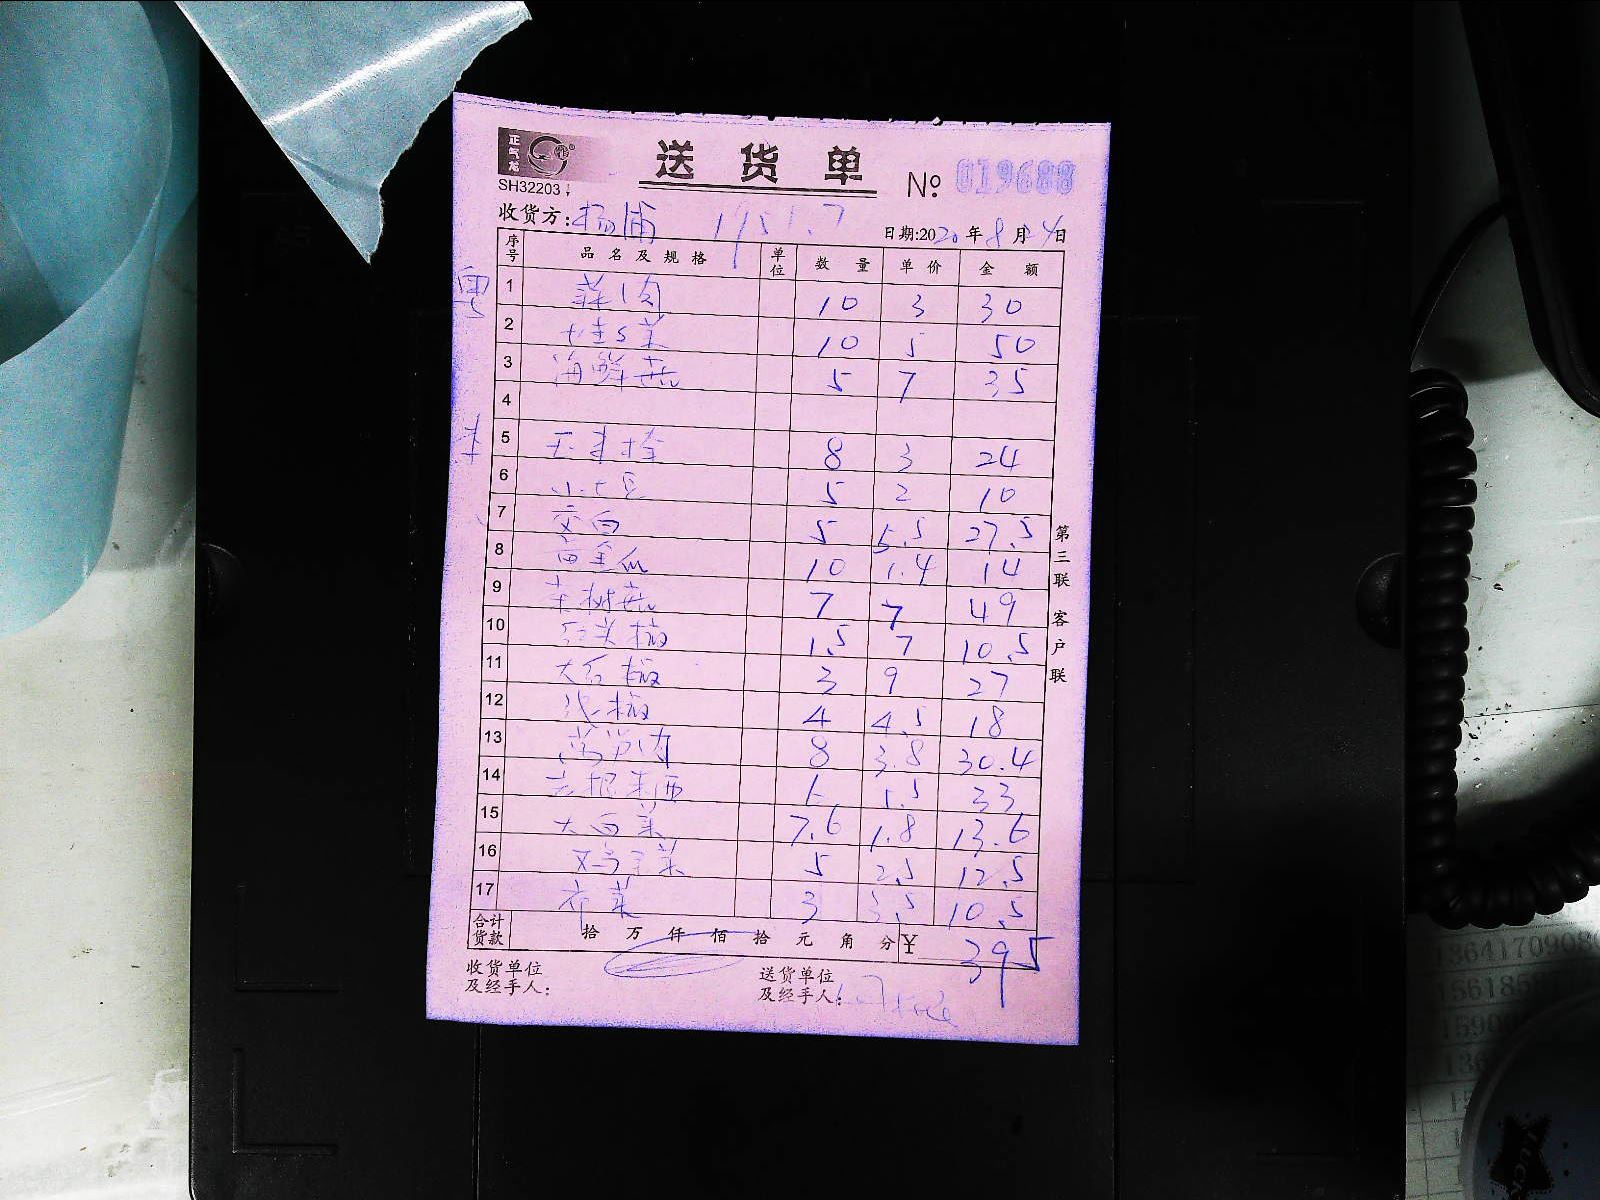 正气龙
送货单
SH32203
№ 019688
收货方:杨浦 1951.7
日期:2020年8月24日
序号 品名及规格 单位 数量 单价 金额
1 10 3 30
2 10 5 50
3 海鲜菇 5 7 35
4
5 玉米 8 3 24
6 小土豆 5 2 10
7 交白 5 5.5 27.5
8 黄金瓜 10 1.4 14
9 茶树菇 7 7 49
10 红尖椒 1.5 7 10.5
11 大石椒 3 9 27
12 椒 4 4.5 18
13 莴笋肉 8 3.8 30.4
14 33
15 大白菜 7.6 1.8 13.6
16 鸡毛菜 5 2.5 12.5
17 菜 3 3.5 10.5
合计货款 拾 万 仟 佰 拾 元 角 分 ¥ 395
收货单位及经手人:
送货单位及经手人:
第三联 客户联
1364170908